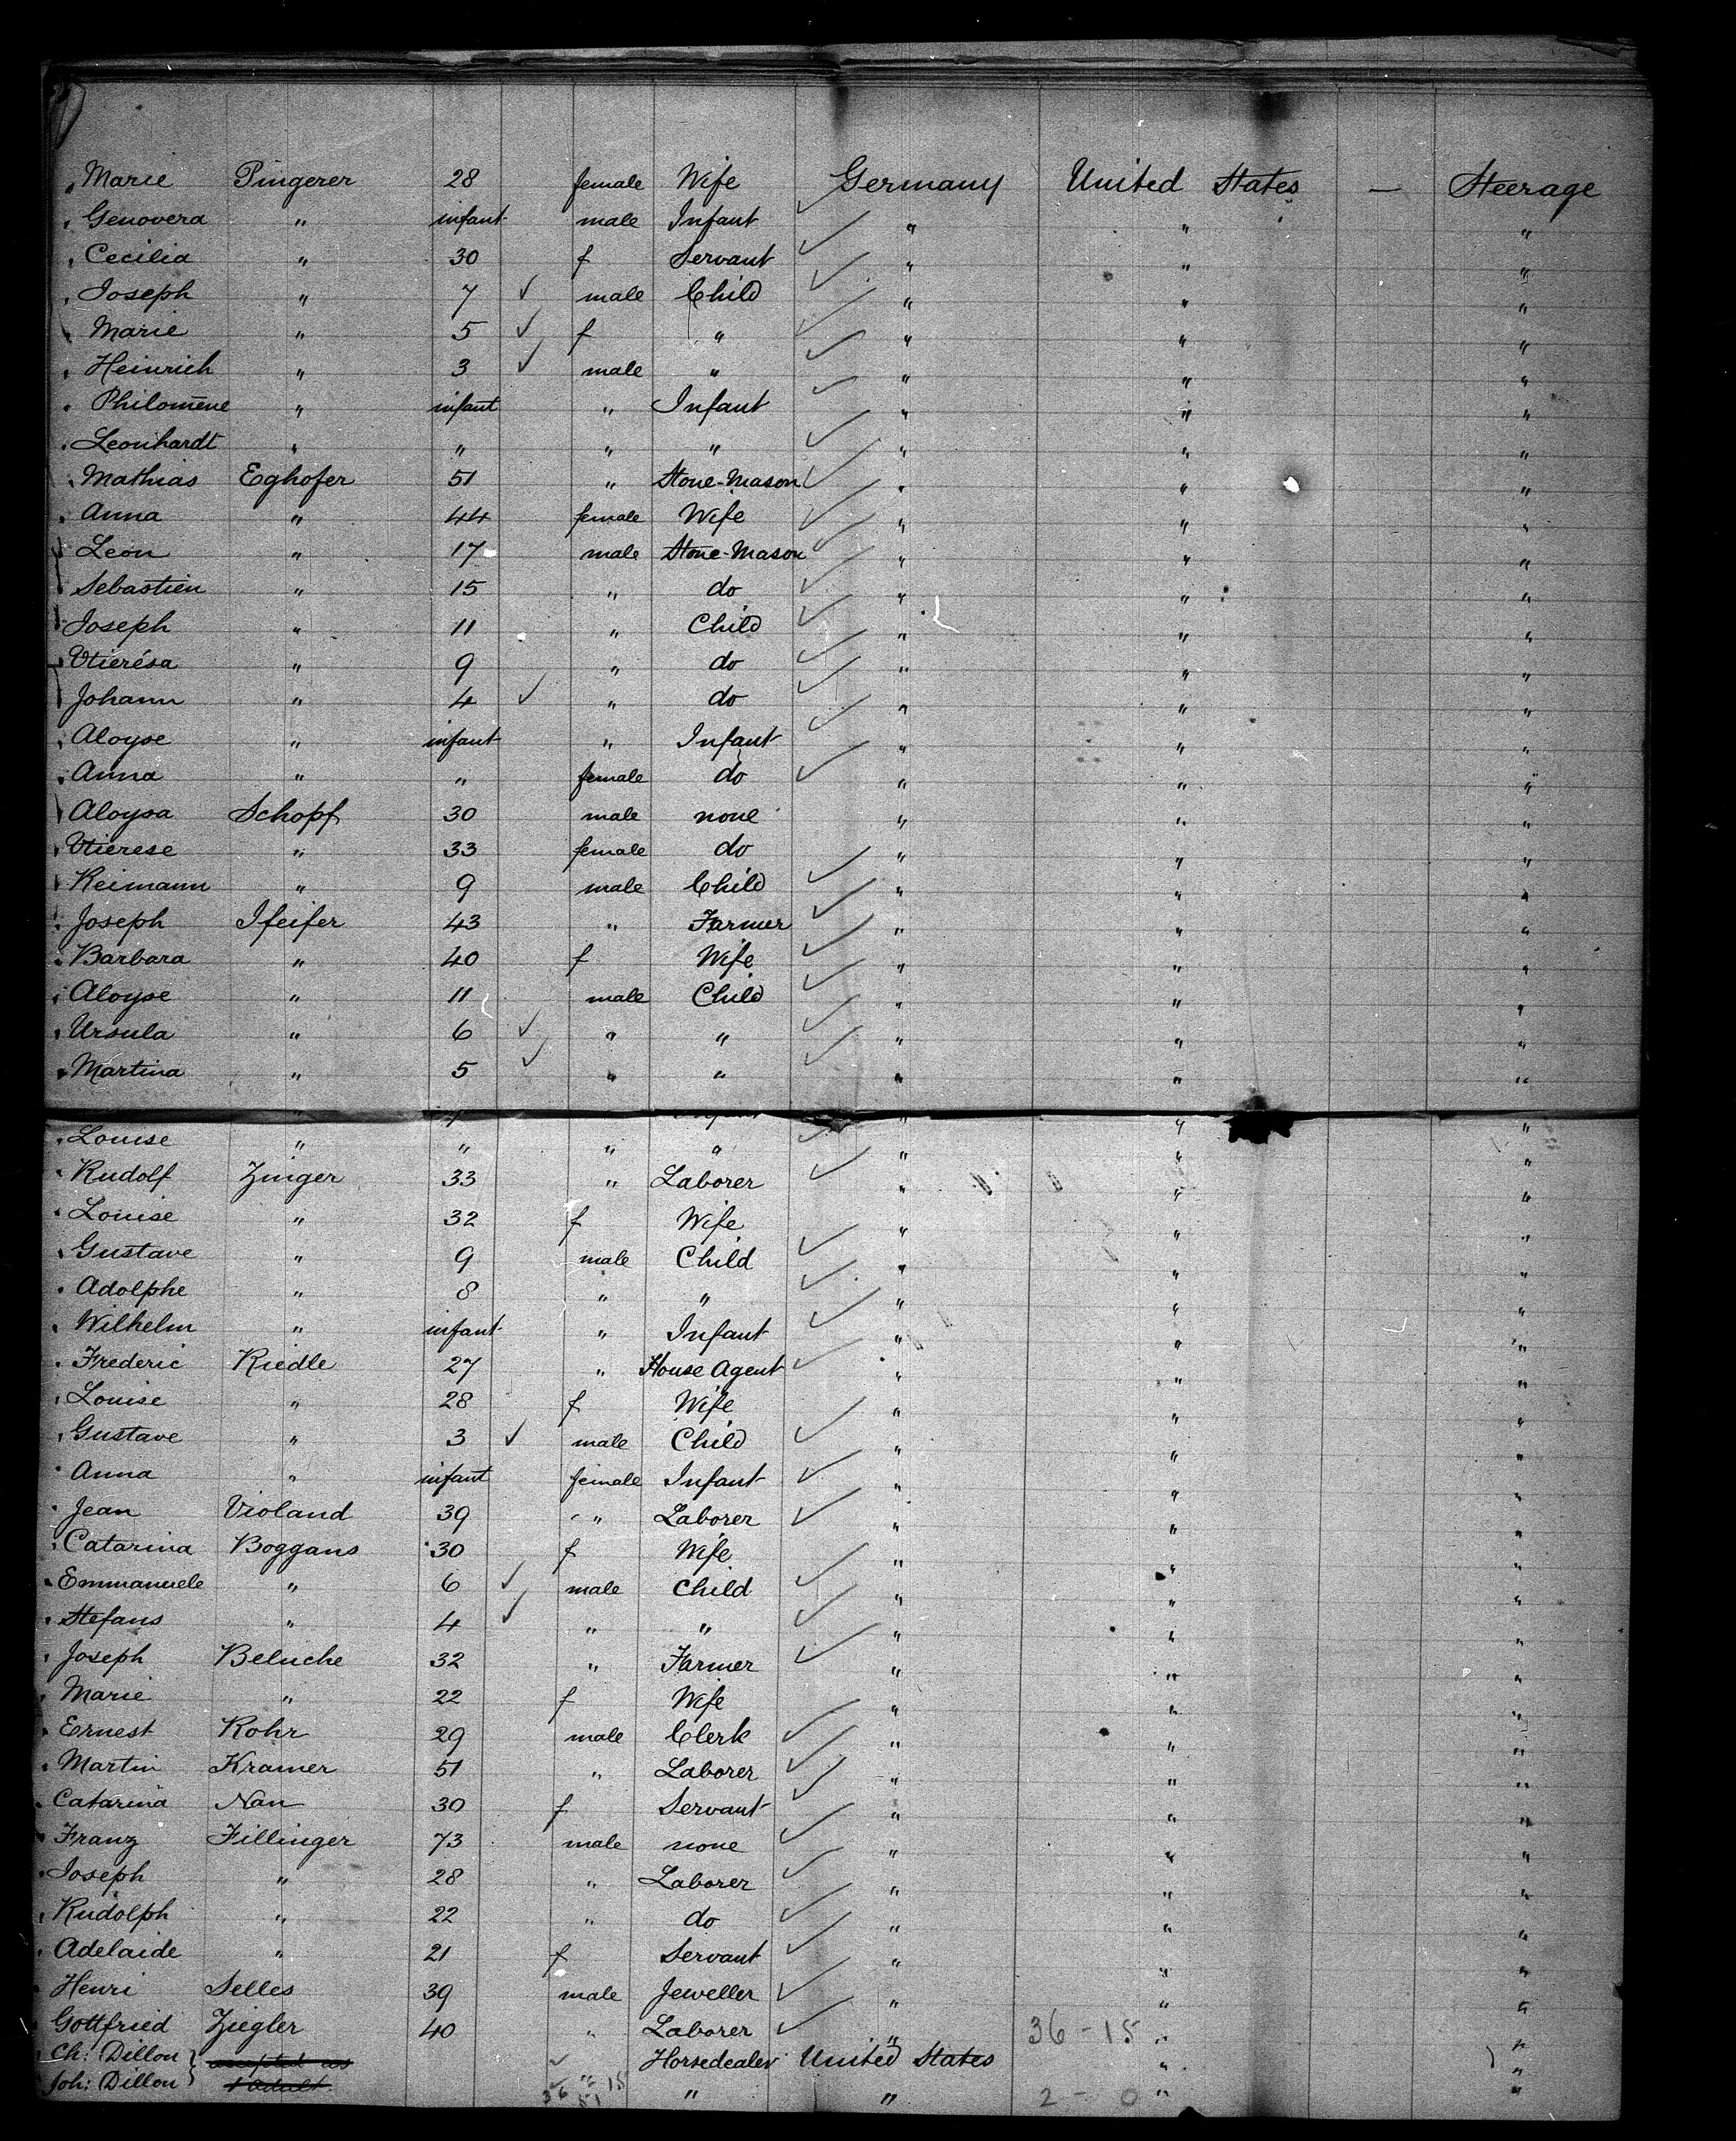 Marie Pingerer 28 female Wife Germany United States — Steerage
Genovera " infant male Infant " " "
Cecilia " 30 f Servant " " "
Joseph " 7 ✓ male Child " " "
Marie " 5 ✓ f " " " "
Heinrich " 3 ✓ male " " " "
Philomene " infant " Infant " " "
Leonhardt " " " " " " "
Mathias Eghofer 51 " Stone-Mason " " "
Anna " 44 female Wife " " "
Leon " 17 male Stone-Mason " " "
Sebastien " 15 " do " " "
Joseph " 11 " Child " " "
Vtierésa " 9 " do " " "
Johann " 4 ✓ " do " " "
Aloyse " infant " Infant " " "
Anna " " female do " " "
Aloysa Schopf 30 male none " " "
Vtierese " 33 female do " " "
Reimann " 9 male Child " " "
Joseph Ifeifer 43 " Farmer " " "
Barbara " 40 f Wife " " "
Aloyse " 11 male Child " " "
Ursula " 6 ✓ " " " " "
Martina " 5 ✓ " " " " "
Louise " " " " " " "
Rudolf Zinger 33 " Laborer " " "
Louise " 32 f Wife " " "
Gustave " 9 male Child " " "
Adolphe " 8 " " " " "
Wilhelm " infant " Infant " " "
Frederic Riedle 27 " House Agent " " "
Louise " 28 f Wife " " "
Gustave " 3 ✓ male Child " " "
Anna " infant female Infant " " "
Jean Violand 39 " Laborer " " "
Catarina Boggans 30 f Wife " " "
Emmanuele " 6 ✓ male Child " " "
Stefans " 4 ✓ " " " " "
Joseph Beluche 32 " Farmer " " "
Marie " 22 f Wife " " "
Ernest Rohr 29 male Clerk " " "
Martin Kramer 51 " Laborer " " "
Catarina Nan 30 f Servant " " "
Franz Fillinger 73 male none " " "
Joseph " 28 " Laborer " " "
Rudolph " 22 " do " " "
Adelaide " 21 f Servant " " "
Henri Selles 39 male Jeweller " " "
Gottfried Ziegler 40 " Laborer " 36-15 " "
Ch: Dillon Horsedealer United States " "
Joh: Dillon 1 adult " " 2-0 " "